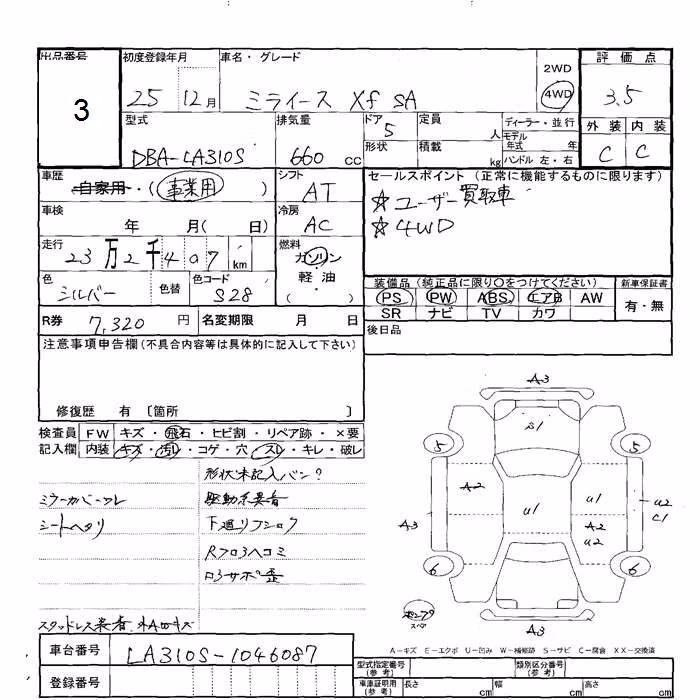 出品番号 初度登録年月 車名・グレード 評価点
3
25 12月 ミライース Xf SA
2WD
4WD
3.5
型式 排気量 ドア 定員 ディーラー・並行
DBA-LA310S 660 cc 5 人
モデル年式 年
形状 積載 kg ハンドル 左・右
外装 内装
C C
車歴 自家用・(事業用) シフト AT
セールスポイント (正常に機能するものに限ります)
☆ユーザー買取車
☆4WD
車検 年 月( 日) 冷房 AC
走行 23万2千407km 燃料 ガソリン・軽・油 ( )
色 シルバー 色替 色コード S28
装備品 (純正品に限り○をつけてください) 新車保証書
PS PW ABS エアB AW 有・無
SR ナビ TV カワ
R券 7,320円 名変期限 月 日
後日品
注意事項申告欄(不具合内容等は具体的に記入して下さい)
修復歴 有 〔箇所 〕
検査員 FW キズ・飛石・ヒビ割・リペア跡・×要
記入欄 内装 キズ・汚レ・コゲ・穴・スレ・キレ・破レ
形状未記入バン?
ミラーカバーワレ 駆動系異音
シートヘタリ 下廻りフショク
Rフロアヘコミ
スタッドレス装着
車台番号 LA310S-1046087
登録番号
A3
A2
U1
U1
A2
U2
U2
C1
A3
A3
5
5
6
6
スペア
A-キズ E-エクボ U-凹み W-補修跡 S-サビ C-腐食 XX-交換済
型式指定番号(参考) 類別区分番号(参考)
車庫証明用(参考) 長さ cm 幅 cm 高さ cm